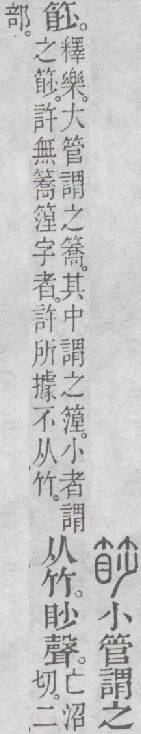 小管謂之
篎。釋樂。大管謂之簥。其中謂之篞。小者謂
之篎。許無簥篞字者。許所據不从竹。
从竹。眇聲。亡沼
切。二
部。